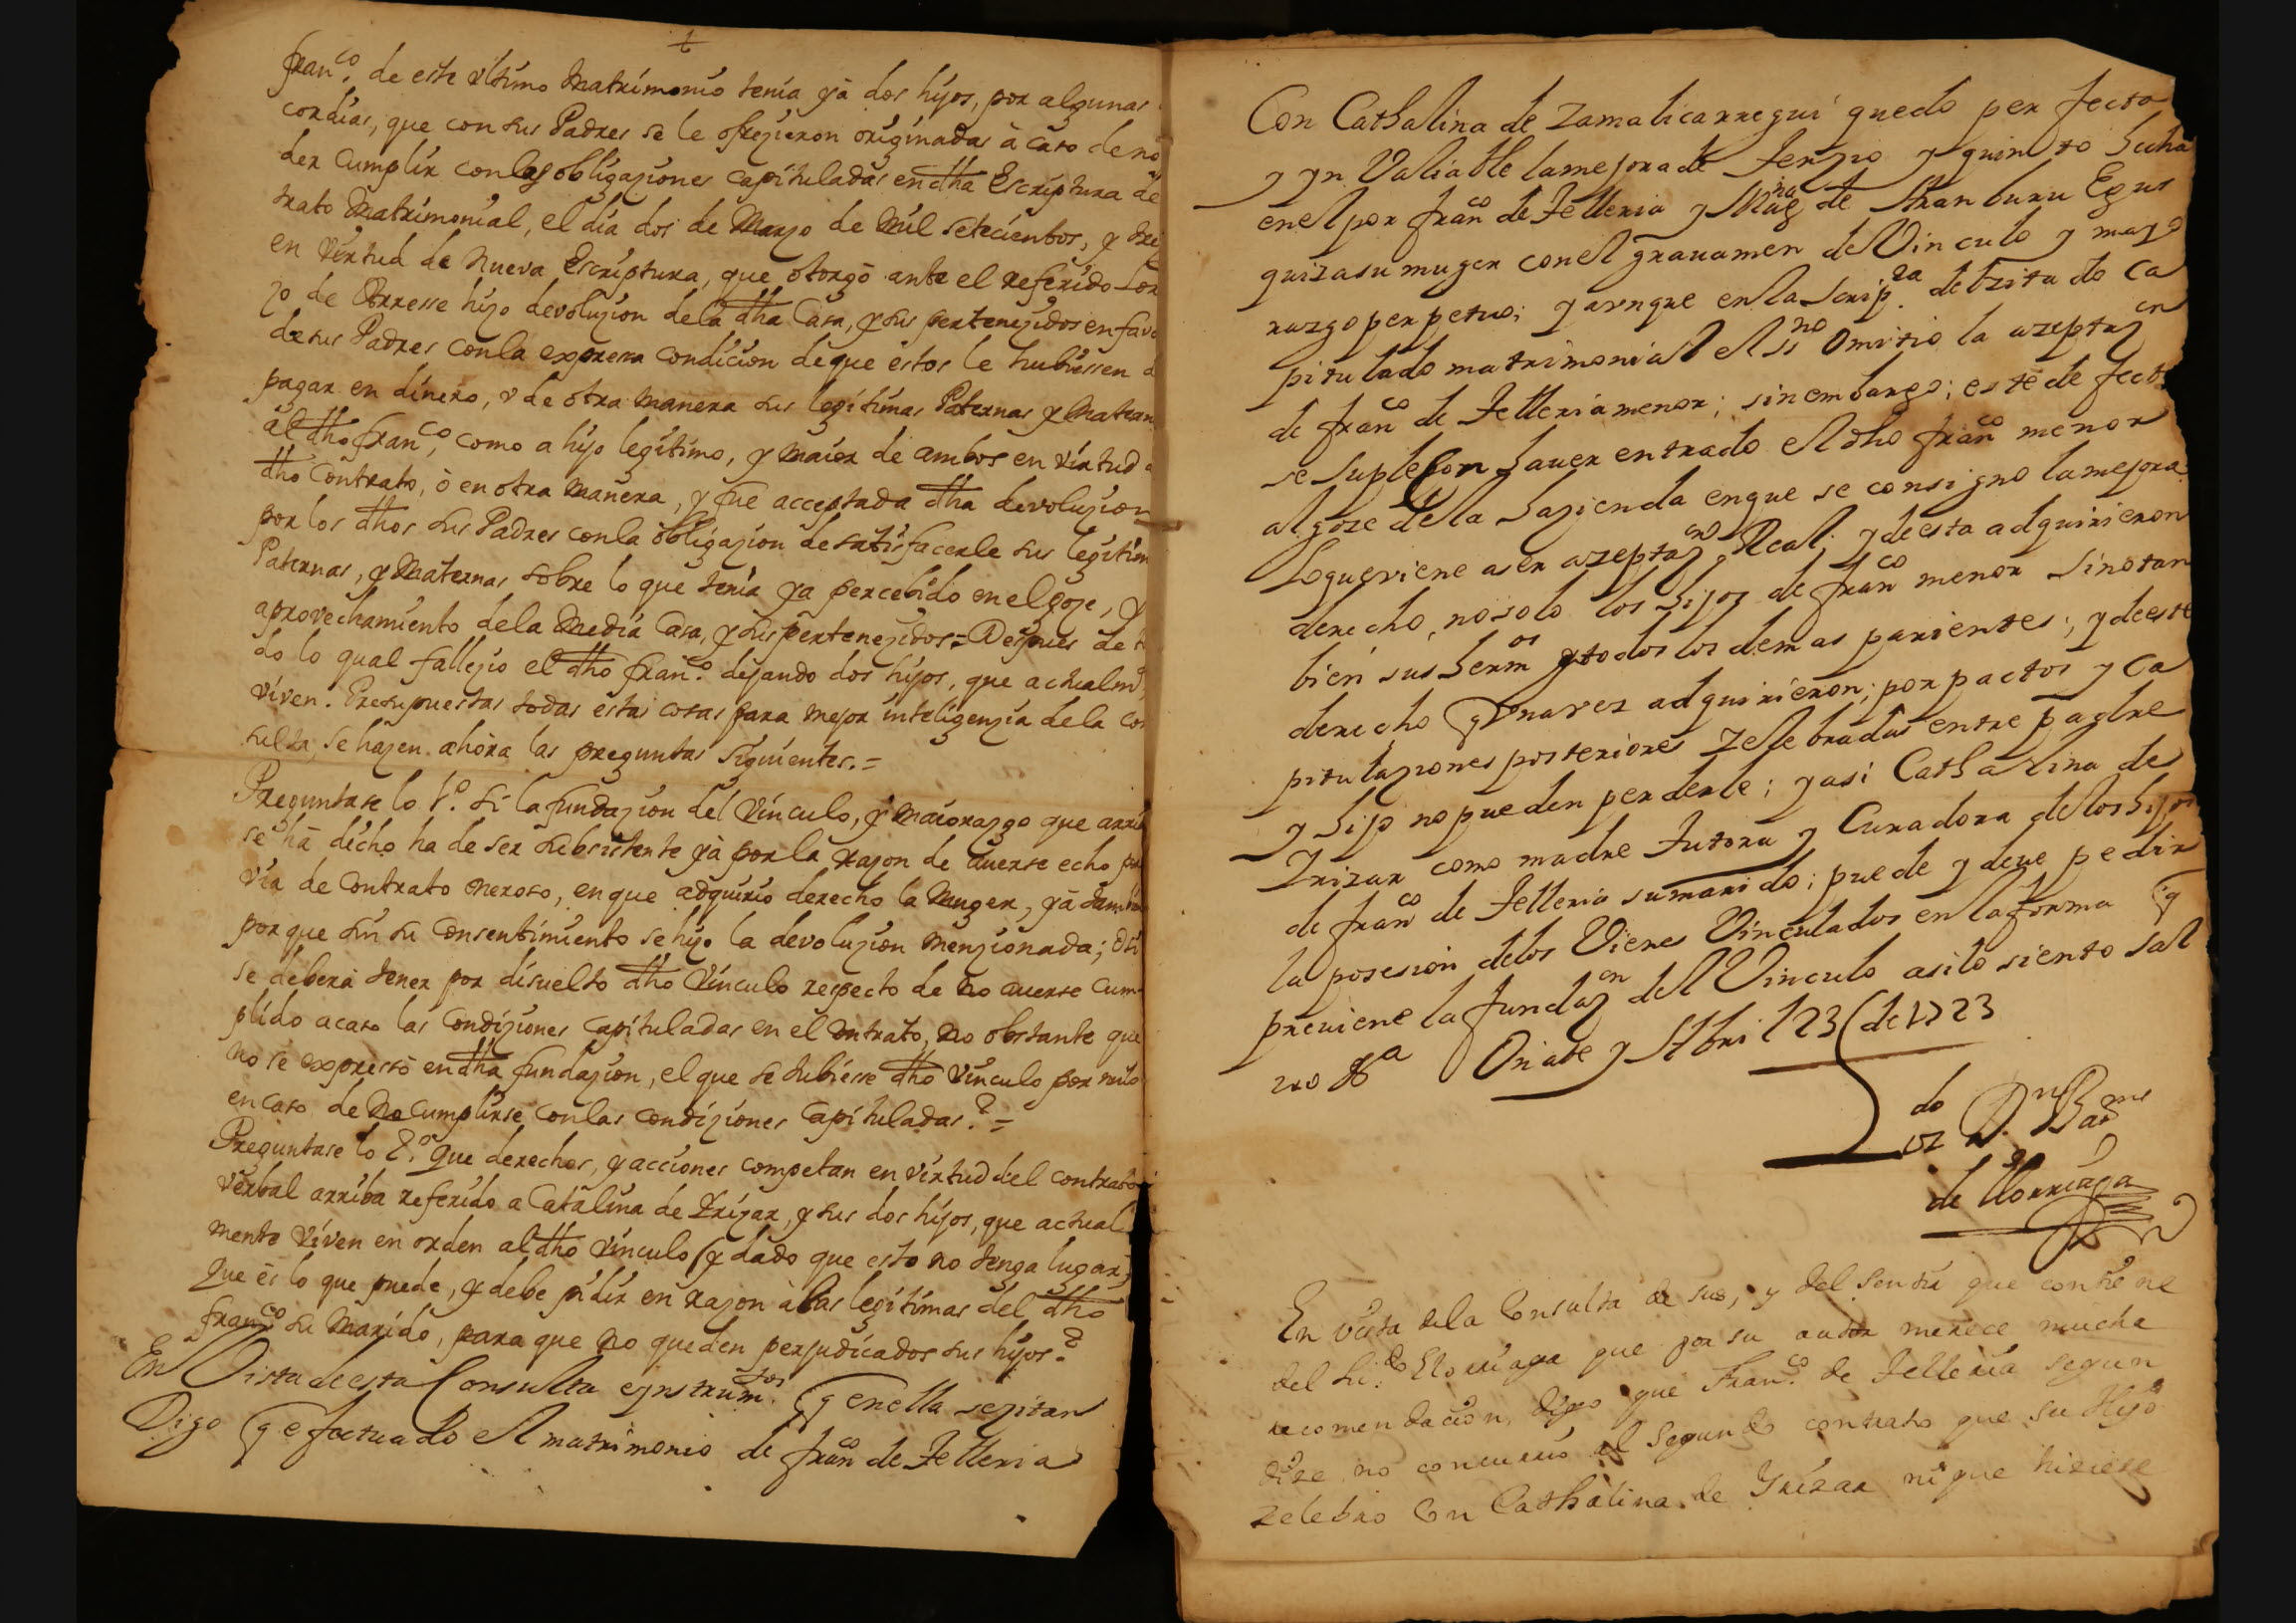 Fran.co de este vltimo Matrimonio tenia yà dos hijos, por algunas
cordias, que con sus Padres se le ofrezieron originadas à caso de no
der Cumplir con las obligaziones capituladas en dha Escriptura de
trato Matrimonial, el dia dos de Marzo de Mil setecientos, y
en virtud de Nueva Escriptura, que otorgò ante el referido Lor
zo de Arresse hizo devoluzion de la dha Casa, y sus pertenezidos en favo
de sus Padres con la expresa condicion de que estos le hubiessen
pagar en dinero, v de otra manera sus legitimas Paternas y Matern
al dho Fran.co, como a hijo legitimo, y maior de ambos en virtud
dho Contrato, ò en otra Manera, y fue acceptada dha devoluzion
por los dhos sus Padres con la obligazion de satisfacerle sus legitim
Paternas, y Maternas sobre lo que tenia ya percebido en el goze, y
aprovechamiento de la Media Casa, y sus pertenezidos = Despues de t
do lo qual fallezio el dho Fran.co dejando dos hijos, que actualm
viven. Presupuestas todas estas cosas para mejor inteligenzia de la Con
sulta, se hazen ahora las preguntas siguientes. =
Preguntase lo 1º. Si la fundazion del Vinculo, y Maiorazgo que arri
se hà dicho ha de ser subsistente yà por la razon de auerse echo por
via de Contrato oneroso, en que adquirio derecho la Muger, yà tambi
por que sin su Consentimiento se hizo la devoluzion menzionada; ò si
se deberà tener por disuelto dho Vinculo respecto de no auerse Cum-
plido acaso las Condiziones capituladas en el Contrato, no obstante que
no se expressò en dha fundazion, el que se hubiesse dho vinculo por nulo
en caso de No Cumplirse con las condiziones capituladas? =
Preguntase lo 2º. Que derechos, y acciones competan en virtud del contrato
verbal arriba referido a Catalina de Yrizar, y sus dos hijos, que actual
mente viven en orden al dho vinculo (y dado que esto no tenga lugar,
Que ès lo que puede, y debe pidir en razon à las legitimas del dho
Fran.co su Marido, para que no queden perjudicados sus hijos?
En Vista de esta Consulta e ynstrum.tos q en ella se zitan
Digo q efectuado el matrimonio de fran.co de Telleria
Con Cathalina de Zamalicarregui quedo perfecta
y yn Valiable la mejora de Terzio y quinto hecha
en el por fran.co de Telleria y Mag.na de Aranburu Egus
quiza su muger con el grauamen de Vinculo y mayo
razgo perpetuo; y avnque en la Scrip.ra de tzitado ca
pitulado matrimonial el ss.no omitio la azeptaz.on
de fran.co de Telleria menor; sin embargo; este defecto
se suple Con hauer entrado el dho fran.co menor
al goze de la hazienda en que se consigno la mejora
lo que viene a ser azeptaz.on Real; y de esta adquirieron
derecho, no solo los hijos de fran.co menor sino tan
bien sus herm.os y todos los demas parientes; y de este
derecho q vna vez adquirieron; por pactos y ca
pitulaziones posteriores zelebradas entre padre
y hijo no pueden perderle; y asi Cathalina de
Yrizar como madre Tutora y Curadora de los hijos
de fran.co de Telleria su marido; puede y deue pedir
la posesion de los Vienes Vinculados en la forma q
preuiene la fundaz.on del Vinculo asi lo siento sal
Oñate y Abril 23 de 1723
do D.n Bar.me
de Elorriaga
En vista de la Consulta de suso, y del sentir que contiene
del Li.do Elorriaga que por su autor merece mucha
recomendacion, digo que Fran.co de Telleria segun
dize no concurrio al Segundo contrato que su Hijo
zelebro Con Cathalina de Yrizar ni que hiziese